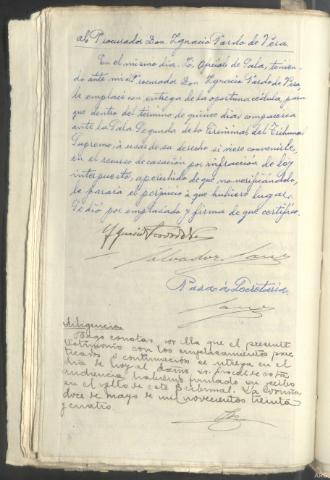 al Procurador Don Ignacio Pardo de Vera.
En el mismo día. Yo, Oficial de Sala, tenien-
do ante mi al Procurador Don Ignacio Pardo de Vera,
le emplacé con entrega de la oportuna cédula, para
que dentro del término de quince días comparezca
ante la Sala Segunda de lo Criminal del Tribunal
Supremo, à usar de su derecho si viere convenirle,
en el recurso de casación por infracción de ley
interpuesto, apercibido de que no verificándolo,
le parará el perjuicio à que hubiere lugar.
Se dió por emplazado y firma de que certifico.
Ignacio Pardo de Vera
Salvador Sanz
Pasa à Secretaría
Sanz
Diligencia
Hago constar por ella que el presente
testimonio con los emplazamientos prac
ticados à continuación se entrega en el
día de hoy al
audiencia habiendo firmado su recibo
en el de este Tribunal. La Coruña
doce de mayo de mil novecientos treinta
y cuatro